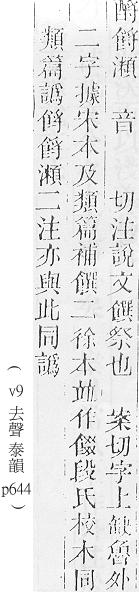 酹䤗瀨 音 切注說文餟祭也 案切字上缺魯外
二字據宋本及類篇補餟二徐本竝作餟段氏校本同
類篇譌䤗瀨二注亦與此同譌
( v9 去聲 泰韻 p644 )